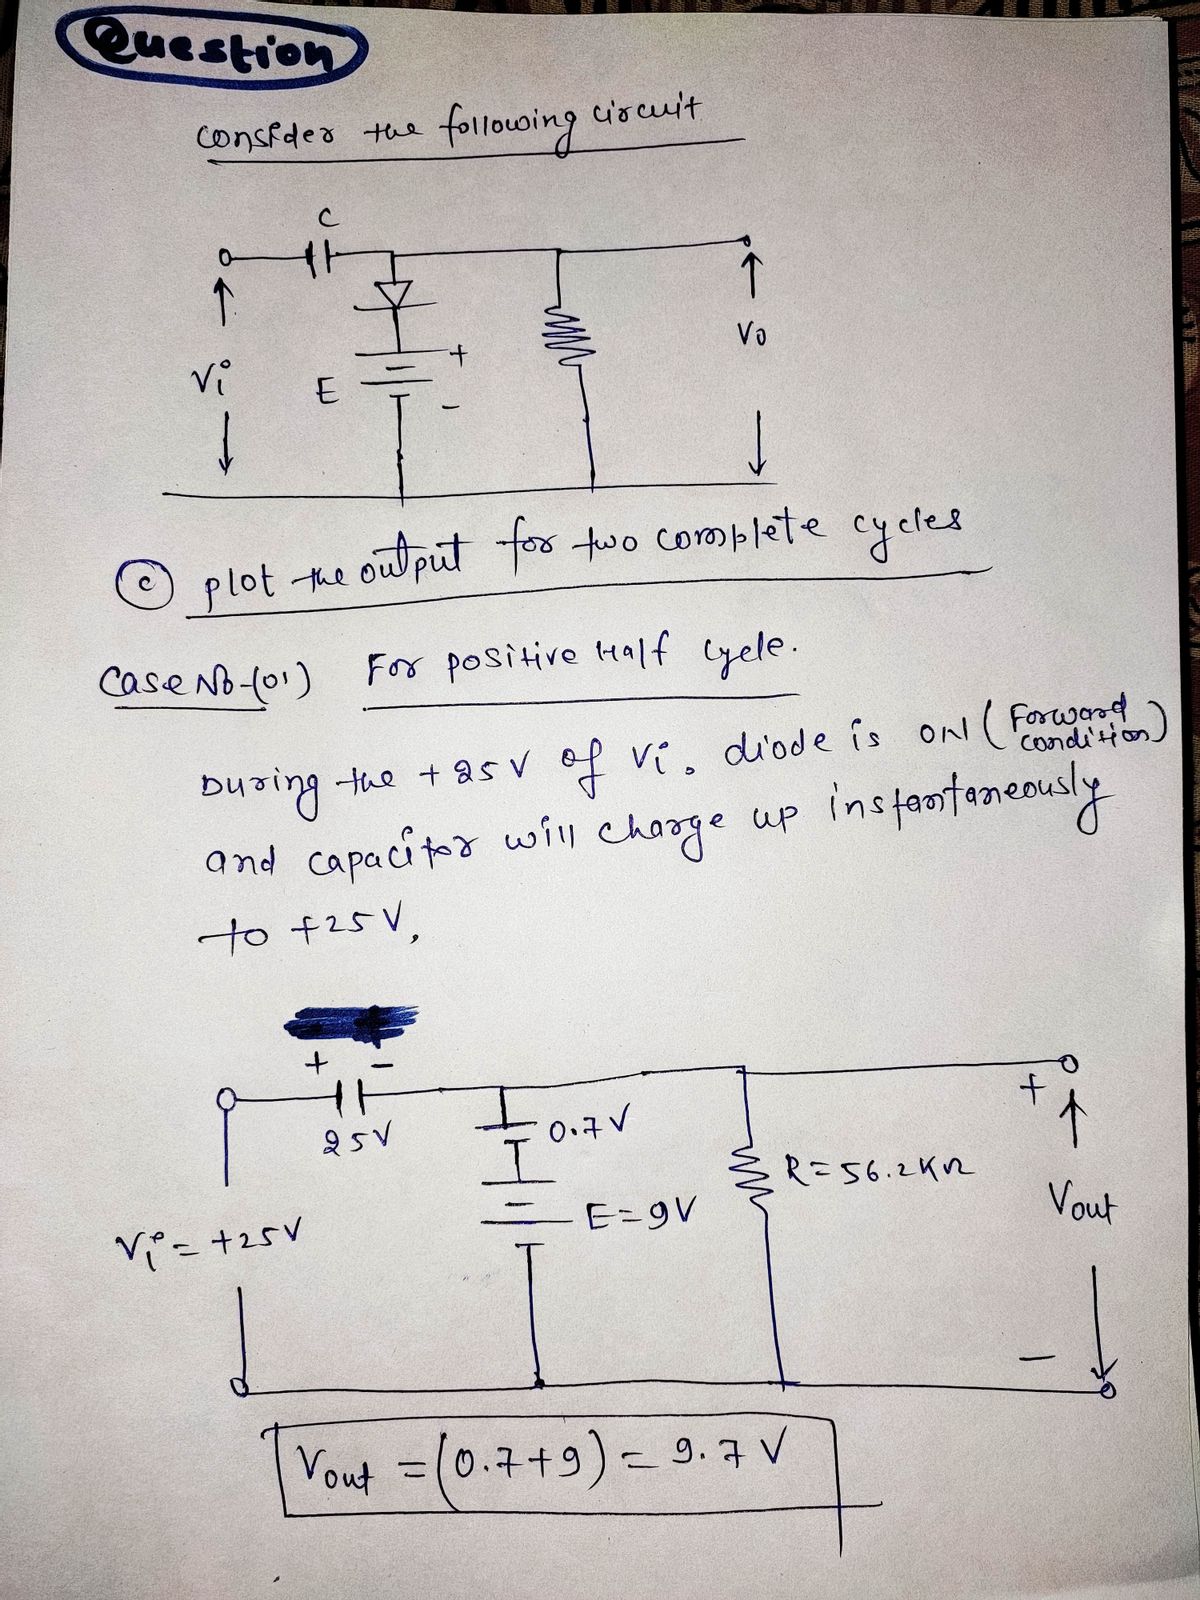 Question
consider the following circuit
C
Vi
E
+
-
Vo
(c) plot the output for two complete cycles
Case No-(01) For positive Half Cycle.
During the +25V of Vi, diode is ON (Forward condition)
and capacitor will charge up instantaneously
to +25V,
+ -
25V
0.7V
+
R=56.2KΩ
E=9V
Vout
Vi=+25V
-
Vout = (0.7+9) = 9.7V